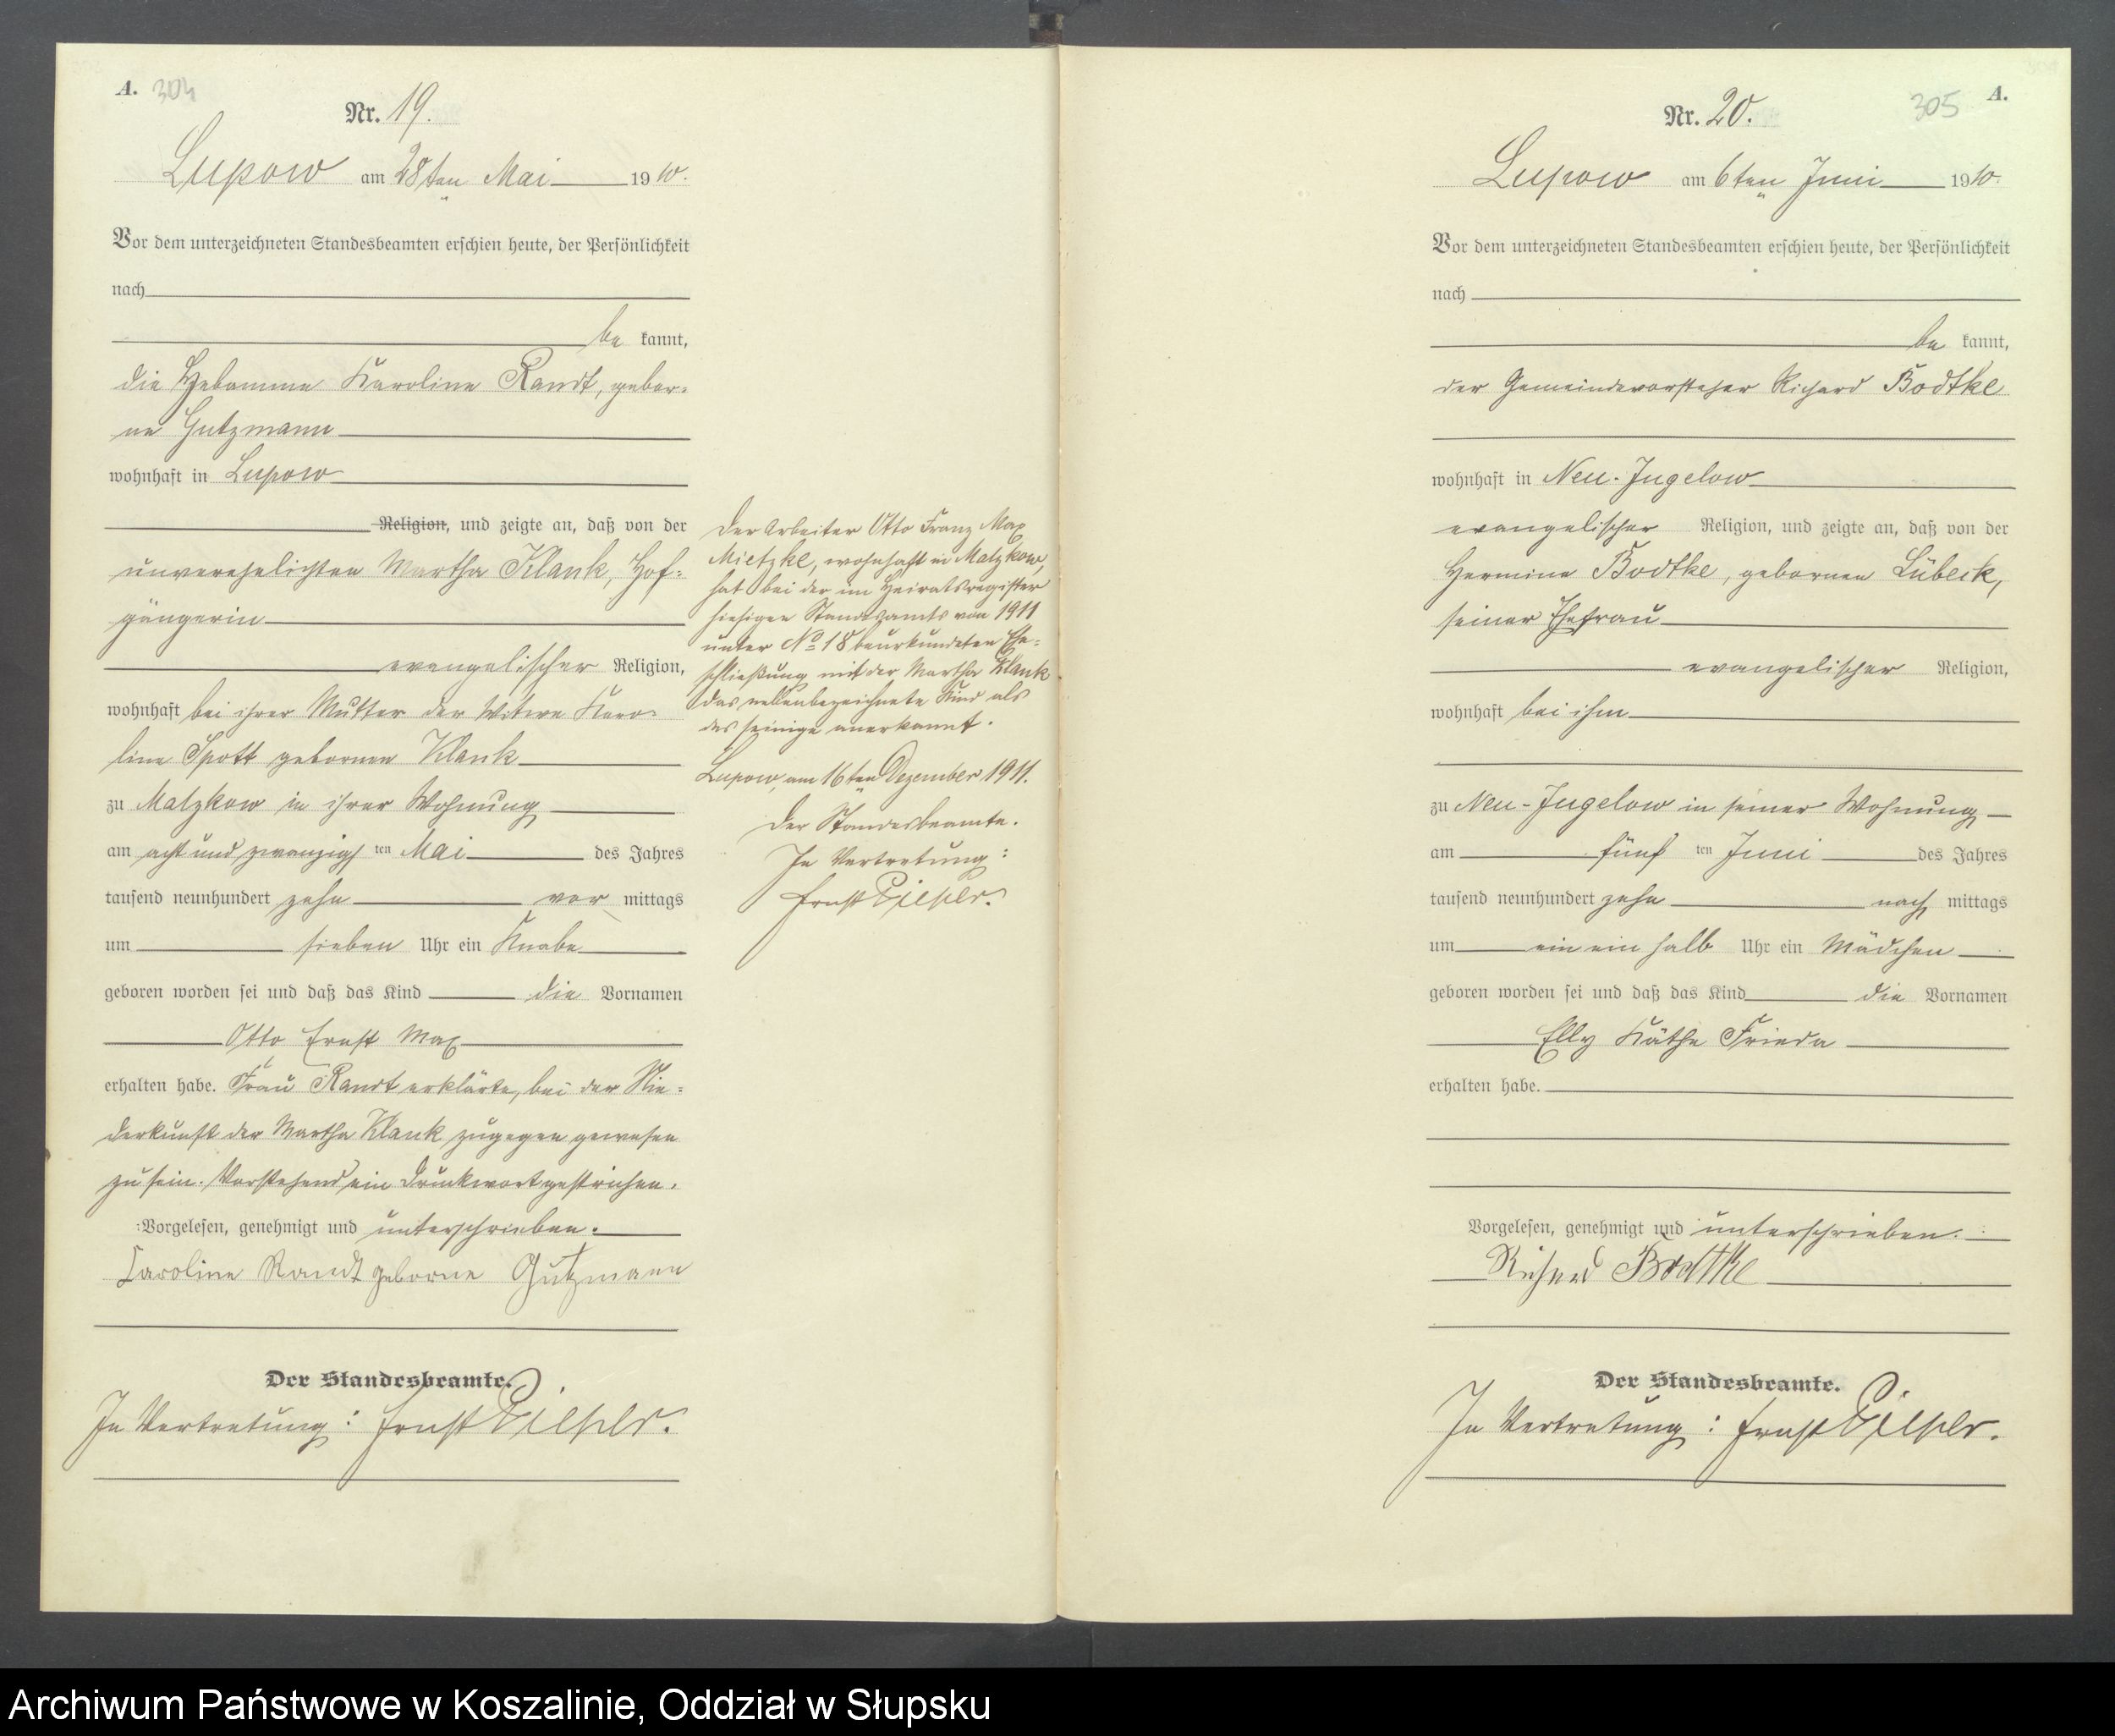 A. 304
Nr. 19.
Lupow am 28ten Mai 1910.
Vor dem unterzeichneten Standesbeamten erschien heute, der Persönlichkeit
nach
be kannt,
die Hebamme Karoline Randt, gebor-
ne Gutzmann
wohnhaft in Lupow
Religion, und zeigte an, daß von der
unverehelichten Martha Klank, Hof-
gängerin
evangelischer Religion,
wohnhaft bei ihrer Mutter der Witwe Karo-
line Spott gebornen Klank
zu Malzkow in ihrer Wohnung
am acht und zwanzigs ten Mai des Jahres
tausend neunhundert zehn vor mittags
um sieben Uhr ein Knabe
geboren worden sei und daß das Kind die Vornamen
Otto Ernst Max
erhalten habe. Frau Randt erklärte, bei der Nie-
derkunft der Martha Klank zugegen gewesen
zu sein. Vorstehend ein Druckwort gestrichen.
Vorgelesen, genehmigt und unterschrieben.
Caroline Randt geborne Gutzmann
Der Standesbeamte.
In Vertretung: Ernst
Der Arbeiter Otto Franz Max
Mietzke, wohnhaft in Malzkow,
hat bei der im Heiratsregister
hiesigen Standesamts von 1911
unter No 18 beurkundeten Ehe-
schließung mit der Martha Klank
das nebenbezeichnete Kind als
das seinige anerkannt.
Lupow, am 16ten Dezember 1911.
Der Standesbeamte.
In Vertretung:
Ernst
305 A.
Nr. 20.
Lupow am 6ten Juni 1910.
Vor dem unterzeichneten Standesbeamten erschien heute, der Persönlichkeit
nach
be kannt,
der Gemeindevorsteher Richard Bodtke
wohnhaft in Neu-Jugelow
evangelischer Religion, und zeigte an, daß von der
Hermine Bodtke, gebornen Lübeck,
seiner Ehefrau
evangelischer Religion,
wohnhaft bei ihm
zu Neu-Jugelow in seiner Wohnung
am fünf ten Juni des Jahres
tausend neunhundert zehn nach mittags
um ein ein halb Uhr ein Mädchen
geboren worden sei und daß das Kind die Vornamen
Elly Käthe Frieda
erhalten habe.
Vorgelesen, genehmigt und unterschrieben.
Richard Bodtke
Der Standesbeamte.
In Vertretung: Ernst
Archiwum Państwowe w Koszalinie, Oddział w Słupsku